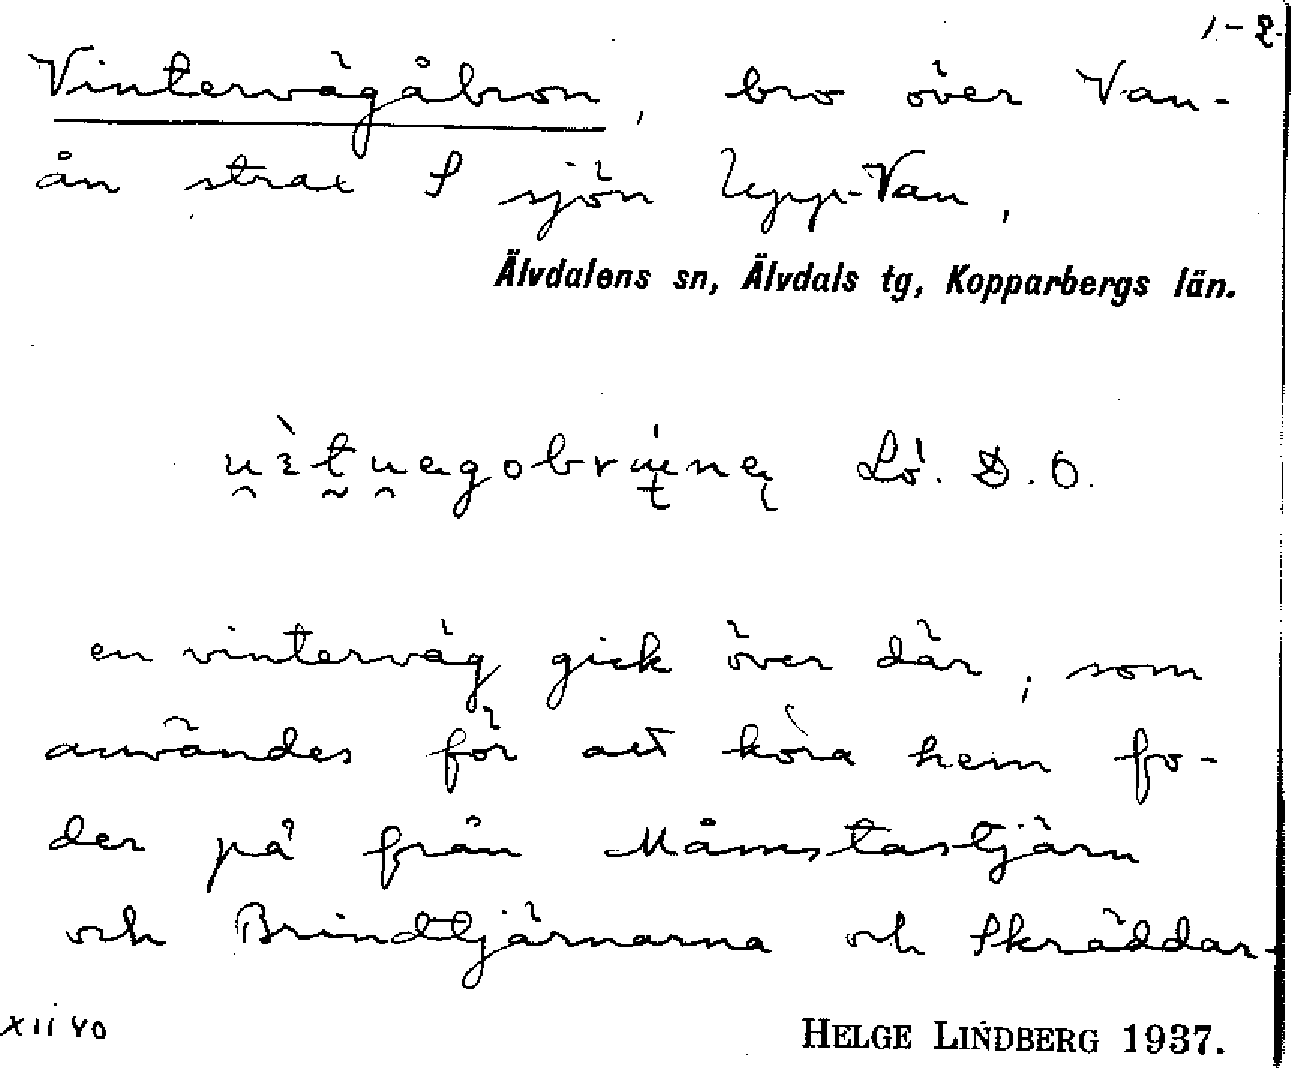 1-2.
Vintervägåbron, bro över Van-
ån strax S sjön Upp-Van,
Älvdalens sn, Älvdals tg, Kopparbergs län.
Lö. D.O.
en vinterväg gick över där, som
användes för att köra hem fo-
der på från Måmstastjärn
och Brindtjärnarna och Skräddar-
XII 40
HELGE LINDBERG 1937.